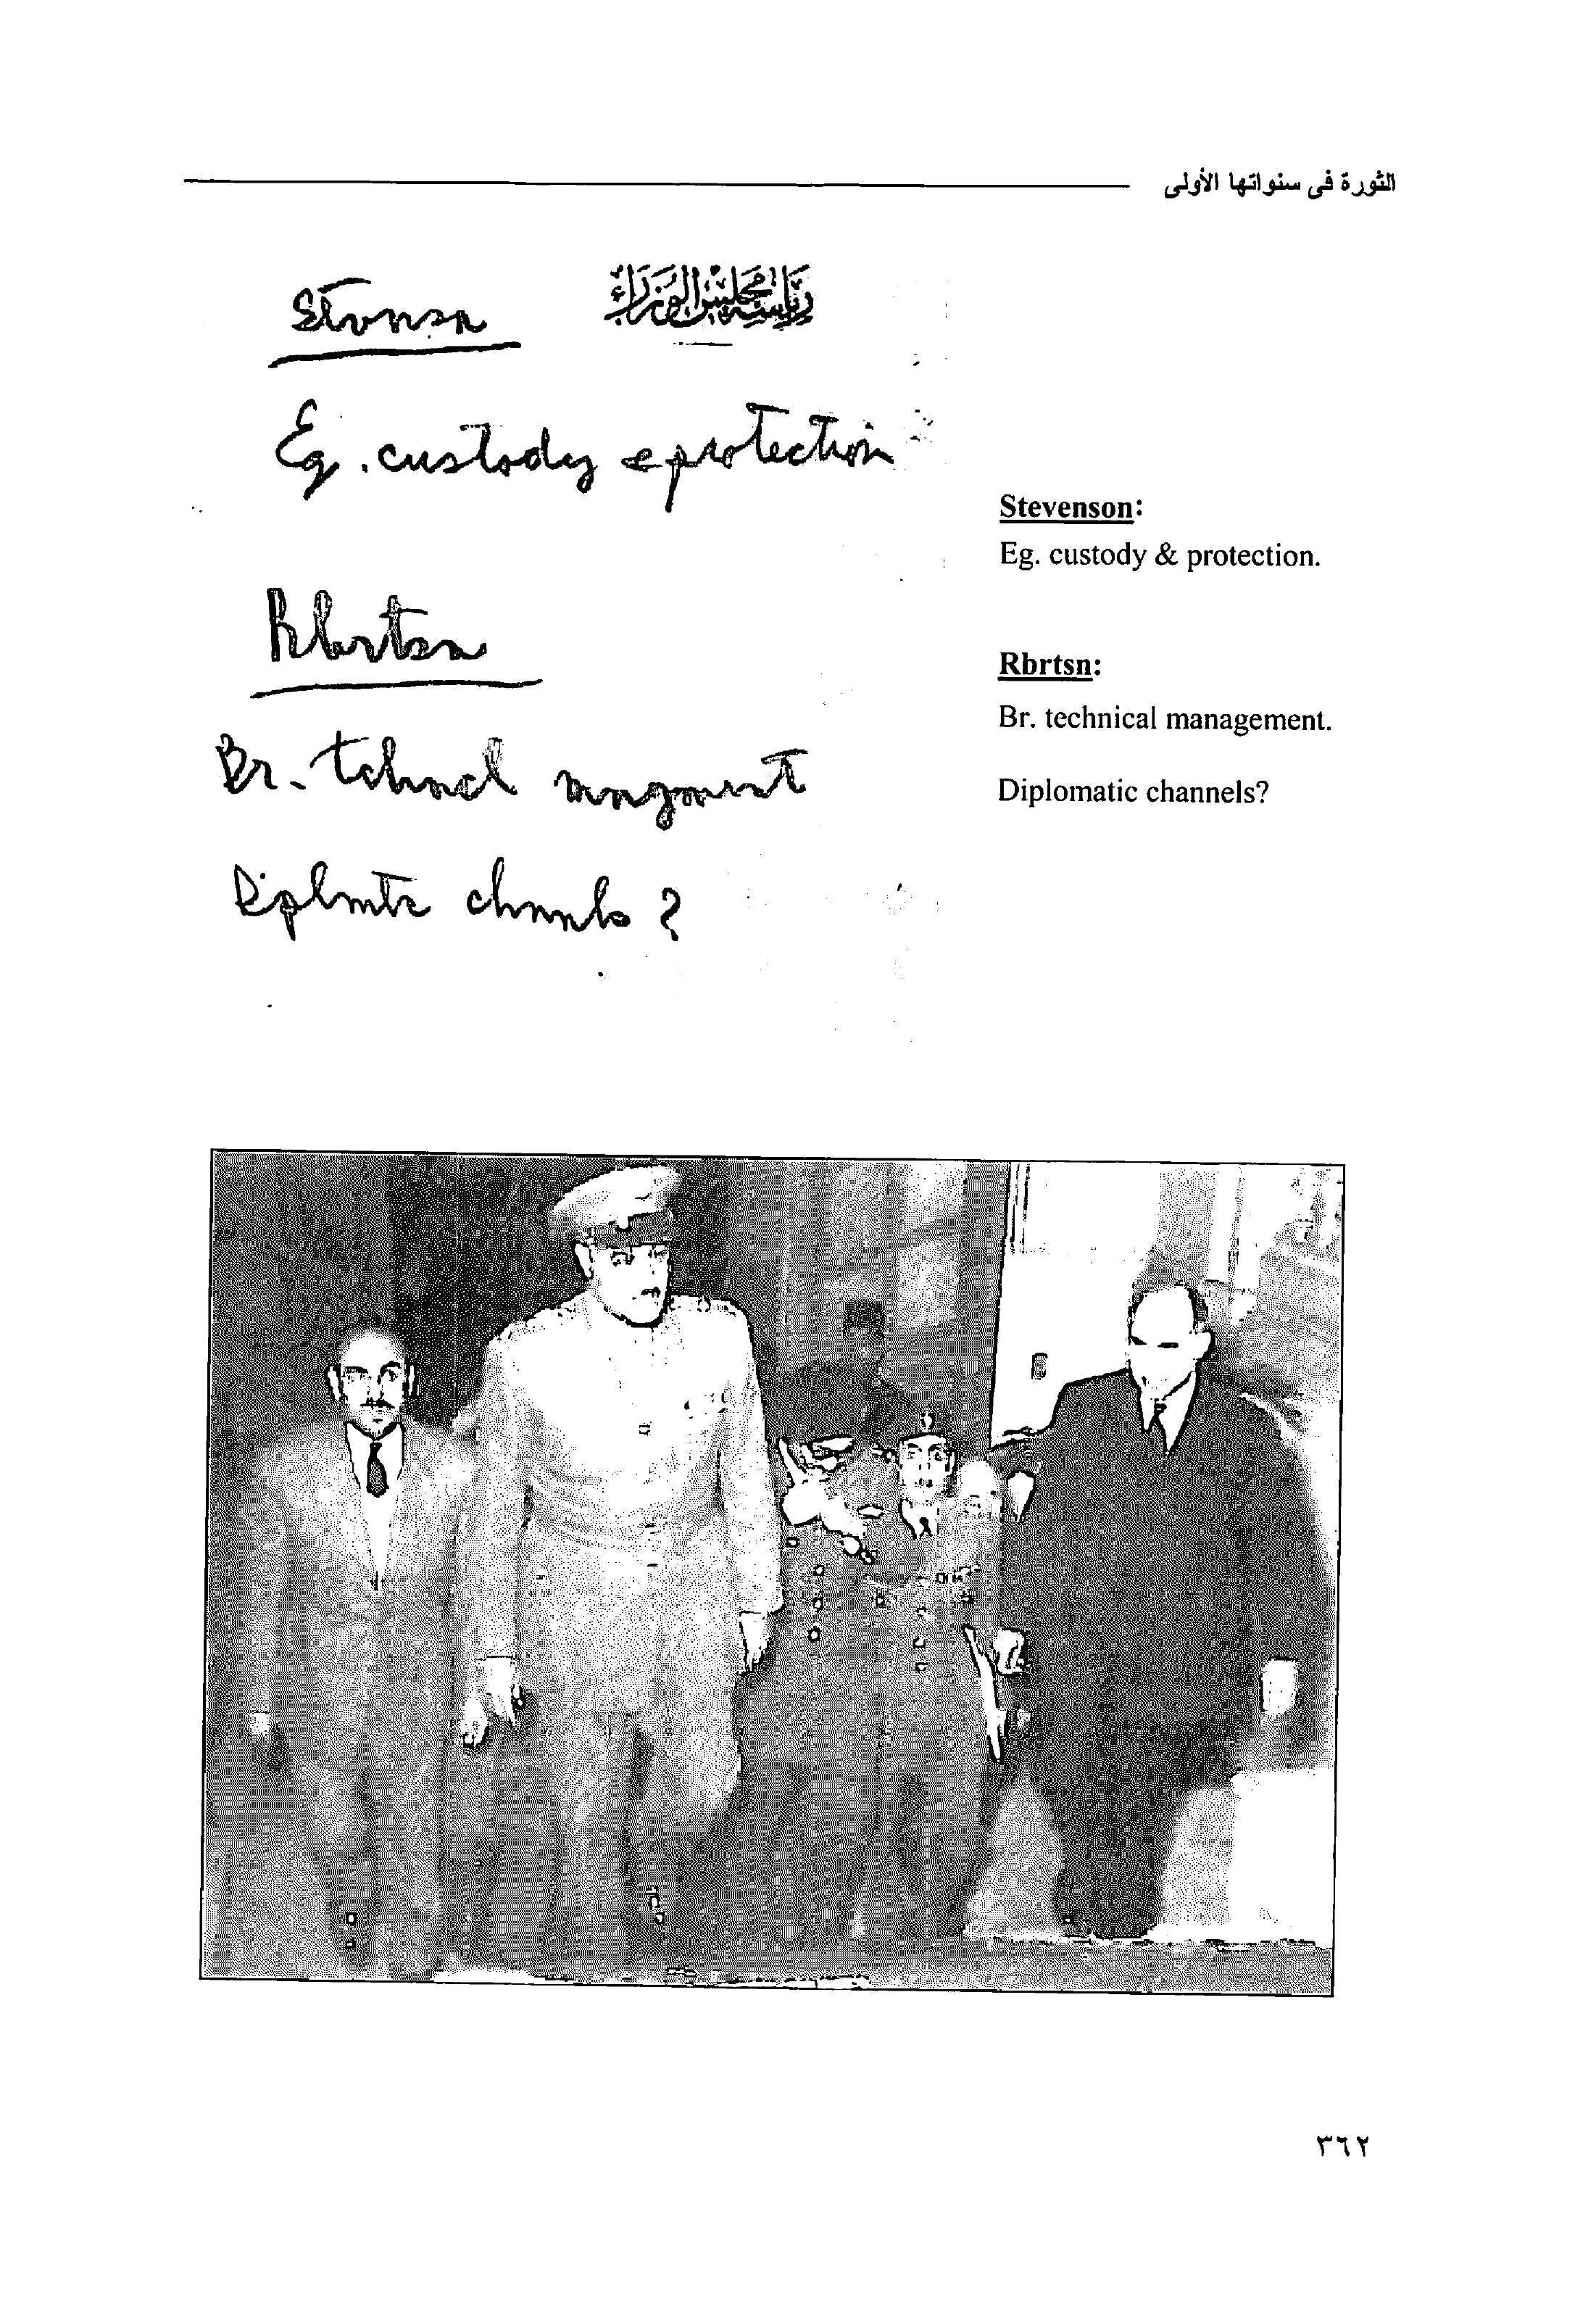 الثورة فى سنواتها الأولى
رئاسة مجلس الوزراء
Stvnsn
Eg. custody & protection
Rbrtsn
Br. tchncl mngmnt
Diplmtc chnnls ?
Stevenson:
Eg. custody & protection.
Rbrtsn:
Br. technical management.
Diplomatic channels?
٣٦٢